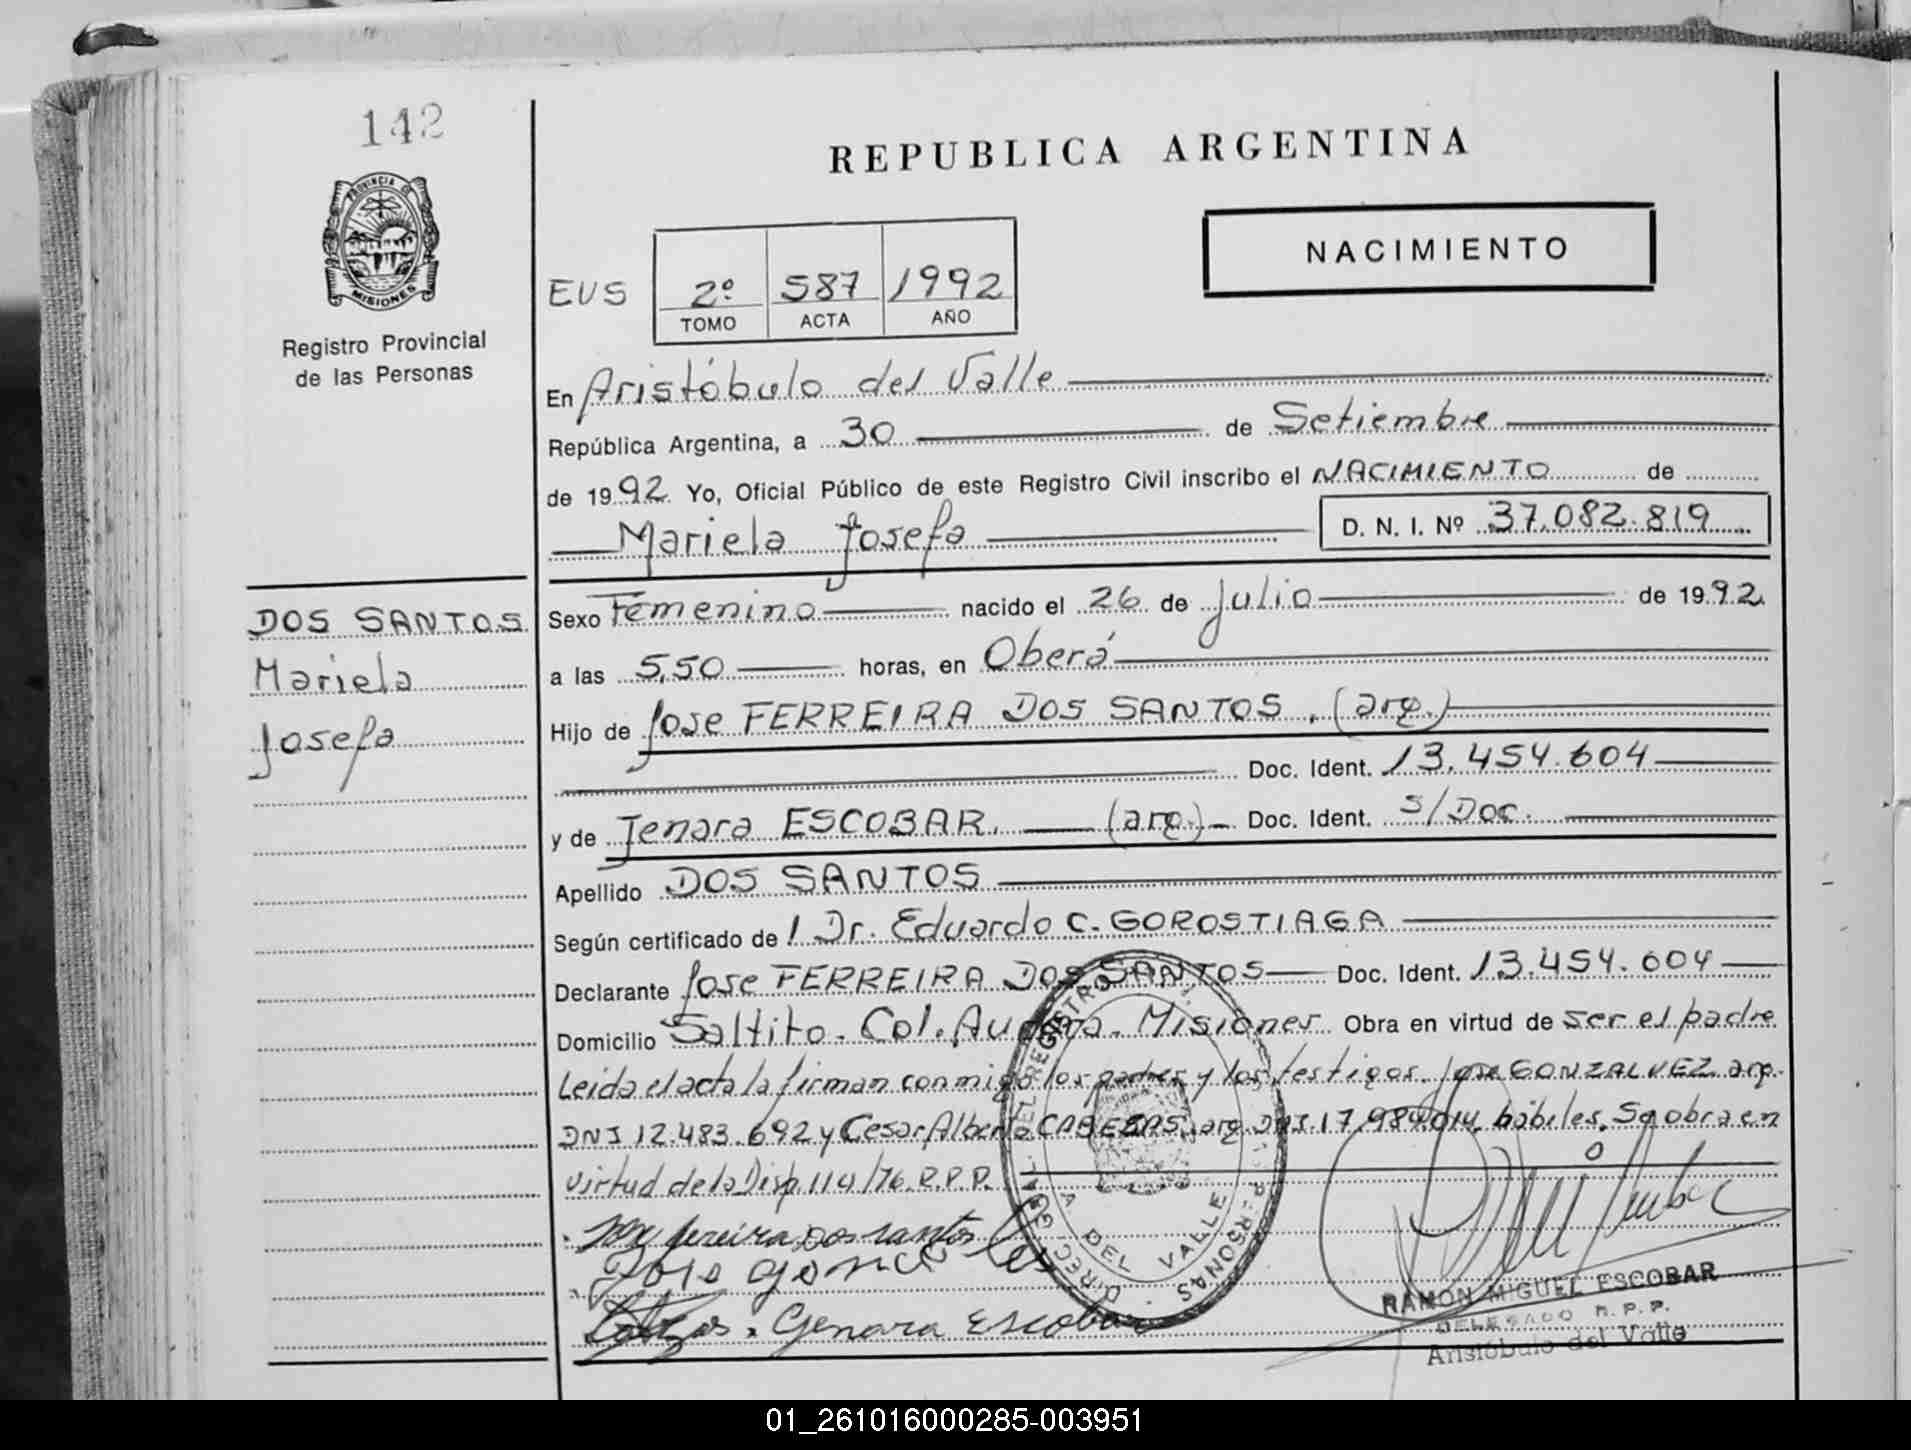 142
PROVINCIA DE
MISIONES
Registro Provincial
de las Personas
REPUBLICA ARGENTINA
NACIMIENTO
EUS 2º 587 1992
TOMO ACTA AÑO
En Aristóbulo del Valle
República Argentina, a 30 de Setiembre
de 1992 Yo, Oficial Público de este Registro Civil inscribo el NACIMIENTO de
Mariela Josefa D. N. I. Nº 37.082.819
DOS SANTOS
Mariela
Josefa
Sexo Femenino nacido el 26 de Julio de 1992
a las 5,50 horas, en Oberá
Hijo de Jose FERREIRA DOS SANTOS, (arg.)
Doc. Ident. 13.454.604
y de Jenara ESCOBAR. (arg.) Doc. Ident. S/Doc.
Apellido DOS SANTOS
Según certificado de 1 Dr. Eduardo C. GOROSTIAGA
Declarante Jose FERREIRA DOS SANTOS Doc. Ident. 13.454.604
Domicilio Saltito. Col. Aurora. Misiones Obra en virtud de ser el padre
Leida el acta la firman conmigo los padres y los testigos. Jose GONZALVEZ arg.
DNI 12.483.692 y Cesar Alberto CABEZAS, arg. DNI. 17.984.014, hábiles. Se obra en
virtud de la Disp. 114/76. R.P.P.
dos santos
Genara Escobar
DEL VALLE
PERSONAS
RAMON MIGUEL ESCOBAR
DELEGADO R. P. P.
Aristóbulo del Valle
01_261016000285-003951